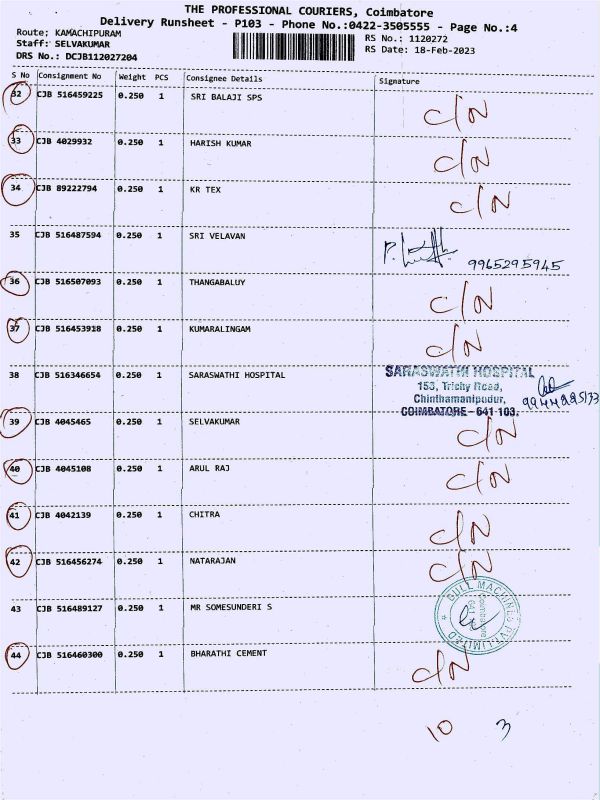 THE PROFESSIONAL COURIERS, Coimbatore
Delivery Runsheet - P103 - Phone No.:0422-3505555 - Page No.:4
Route; KAMACHIPURAM
Staff: SELVAKUMAR
DRS No.: DCJB112027204
RS No.: 1120272
RS Date: 18-Feb-2023
S No Consignment No Weight PCS Consignee Details Signature
32 CJB 516459225 0.250 1 SRI BALAJI SPS C/N
33 CJB 4029932 0.250 1 HARISH KUMAR C/N
34 CJB 89222794 0.250 1 KR TEX C/N
35 CJB 516487594 0.250 1 SRI VELAVAN 9965295945
36 CJB 516507093 0.250 1 THANGABALUY C/N
37 CJB 516453918 0.250 1 KUMARALINGAM C/N
38 CJB 516346654 0.250 1 SARASWATHI HOSPITAL
SARASWATHI HOSPITAL
153, Trichy Road,
Chinthamanipudur,
COIMBATORE - 641 103.
39 CJB 4045465 0.250 1 SELVAKUMAR C/N
40 CJB 4045108 0.250 1 ARUL RAJ C/N
41 CJB 4042139 0.250 1 CHITRA C/N
42 CJB 516456274 0.250 1 NATARAJAN C/N
43 CJB 516489127 0.250 1 MR SOMESUNDERI S
BULL MACHINES PVT. LIMITED
Coimbatore
44 CJB 516460300 0.250 1 BHARATHI CEMENT C/N
10 3